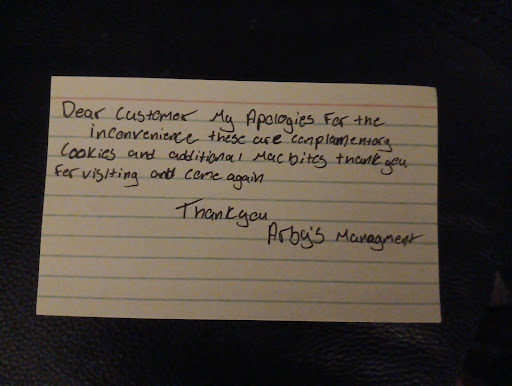 Dear Customer My Apologies For the
inconvenience these are complamentary
Cookies and additional Mac bites thank you
For visiting and come again
Thank you
Arby's Managment